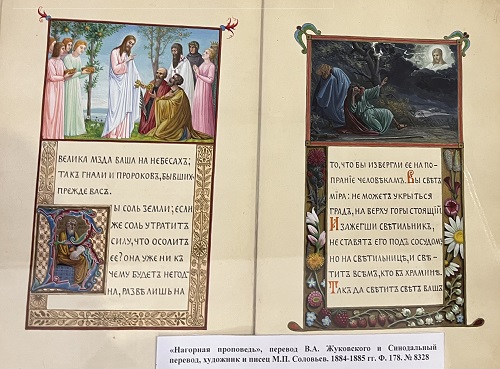 ВЕЛИКА МЗДА ВАША НА НЕБЕСАХЪ;
ТАКЪ ГНАЛИ И ПРОРОКОВЪ, БЫВШИХЪ
ПРЕЖДЕ ВАСЪ.
ВЫ СОЛЬ ЗЕМЛИ; ЕСЛИ
ЖЕ СОЛЬ УТРАТИТЪ
СИЛУ, ЧТО ОСОЛИТЪ
ЕЕ? ОНА УЖЕ НИ КЪ
ЧЕМУ БУДЕТЪ НЕГОД-
НА, РАЗВѢ ЛИШЬ НА
ТО, ЧТО БЫ ИЗВЕРГЛИ ЕЕ НА ПО-
ПРАНІЕ ЧЕЛОВѢКАМЪ. ВЫ СВѢТЪ
МІРА: НЕ МОЖЕТЪ УКРЫТЬСЯ
ГРАДЪ, НА ВЕРХУ ГОРЫ СТОЯЩІЙ.
И ЗАЖЕГШИ СВѢТИЛЬНИКЪ,
НЕ СТАВЯТЪ ЕГО ПОДЪ СОСУДОМЪ,
НО НА СВѢТИЛЬНИЦѢ, И СВѢ-
ТИТЪ ВСѢМЪ, КТО ВЪ ХРАМИНѢ.
ТАКЪ ДА СВѢТИТЪ СВѢТЪ ВАШЪ
«Нагорная проповедь», перевод В.А. Жуковского и Синодальный
перевод, художник и писец М.П. Соловьев. 1884-1885 гг. Ф. 178. № 8328